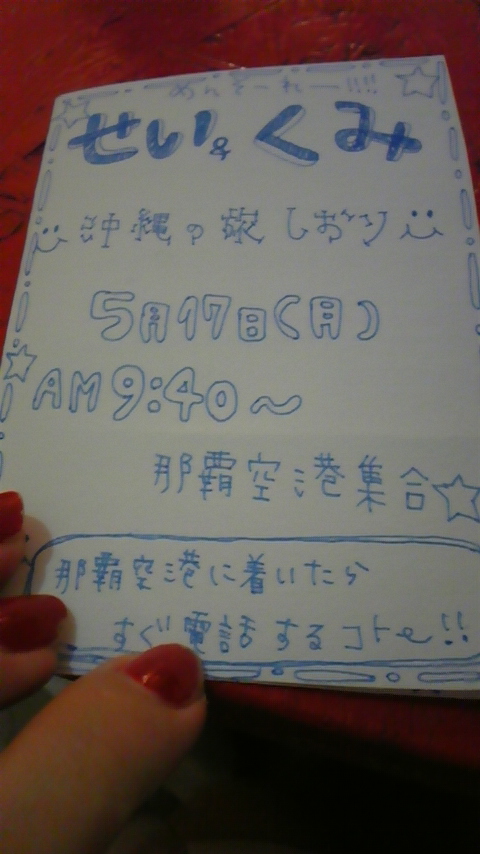 めんそーれー!!!!
せい&くみ
沖縄の旅しおり
5月17日(月)
AM9:40〜
那覇空港集合
那覇空港に着いたら
すぐ電話するコトe!!